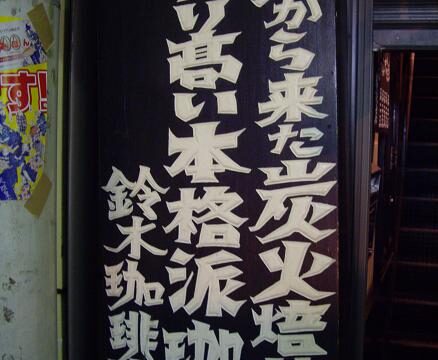 から来た炭火焙
り高い本格派珈
鈴木珈琲
す!